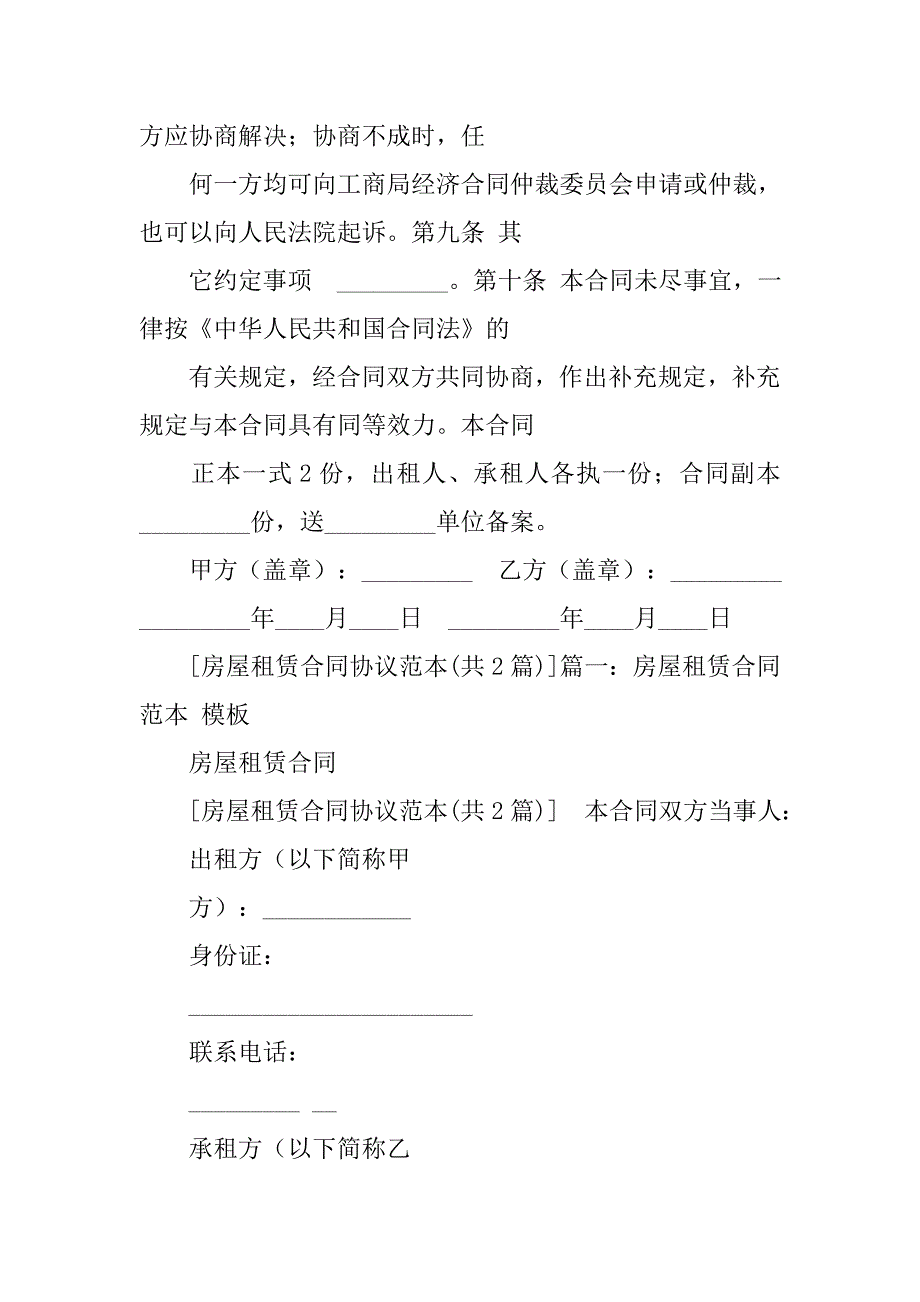 方应协商解决；协商不成时，任
何一方均可向工商局经济合同仲裁委员会申请或仲裁，
也可以向人民法院起诉。第九条 其
它约定事项 _________。第十条 本合同未尽事宜，一
律按《中华人民共和国合同法》的
有关规定，经合同双方共同协商，作出补充规定，补充
规定与本合同具有同等效力。本合同
正本一式 2 份，出租人、承租人各执一份；合同副本
_________份，送_________单位备案。
甲方（盖章）：_________ 乙方（盖章）：_________
_________年____月____日 _________年____月____日
[房屋租赁合同协议范本(共 2 篇)]篇一：房屋租赁合同
范本 模板
房屋租赁合同
[房屋租赁合同协议范本(共 2 篇)] 本合同双方当事人：
出租方（以下简称甲
方）：____________
身份证：
_______________________
联系电话：
_________ __
承租方（以下简称乙